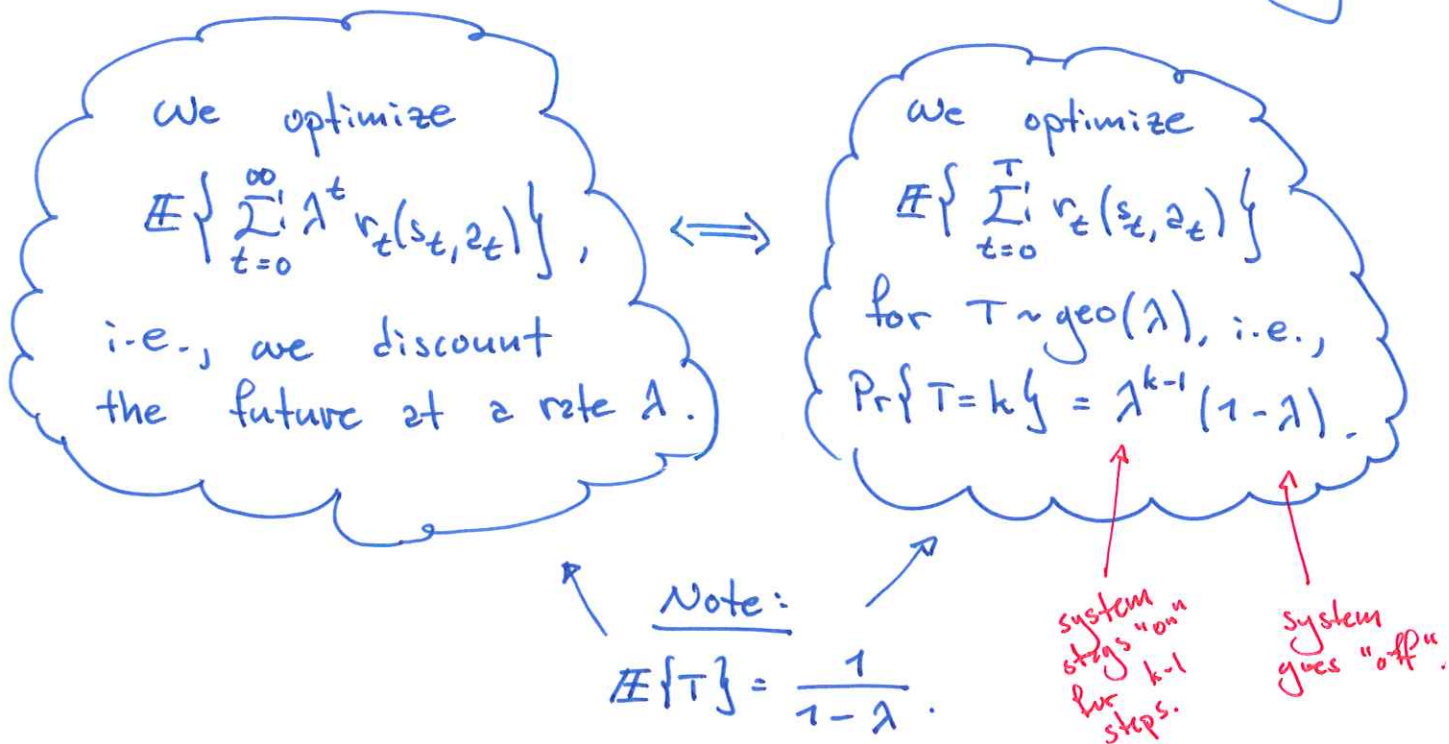 We optimize
𝔼{ ∑_{t=0}^{∞} λ^t r_t(s_t, a_t) },
i.e., we discount
the future at a rate λ.
⟺
We optimize
𝔼{ ∑_{t=0}^{T} r_t(s_t, a_t) }
for T ~ geo(λ), i.e.,
Pr{T=k} = λ^{k-1} (1-λ).
Note:
𝔼{T} = 1/(1-λ).
system
stays "on"
for k-1
steps.
system
goes "off".